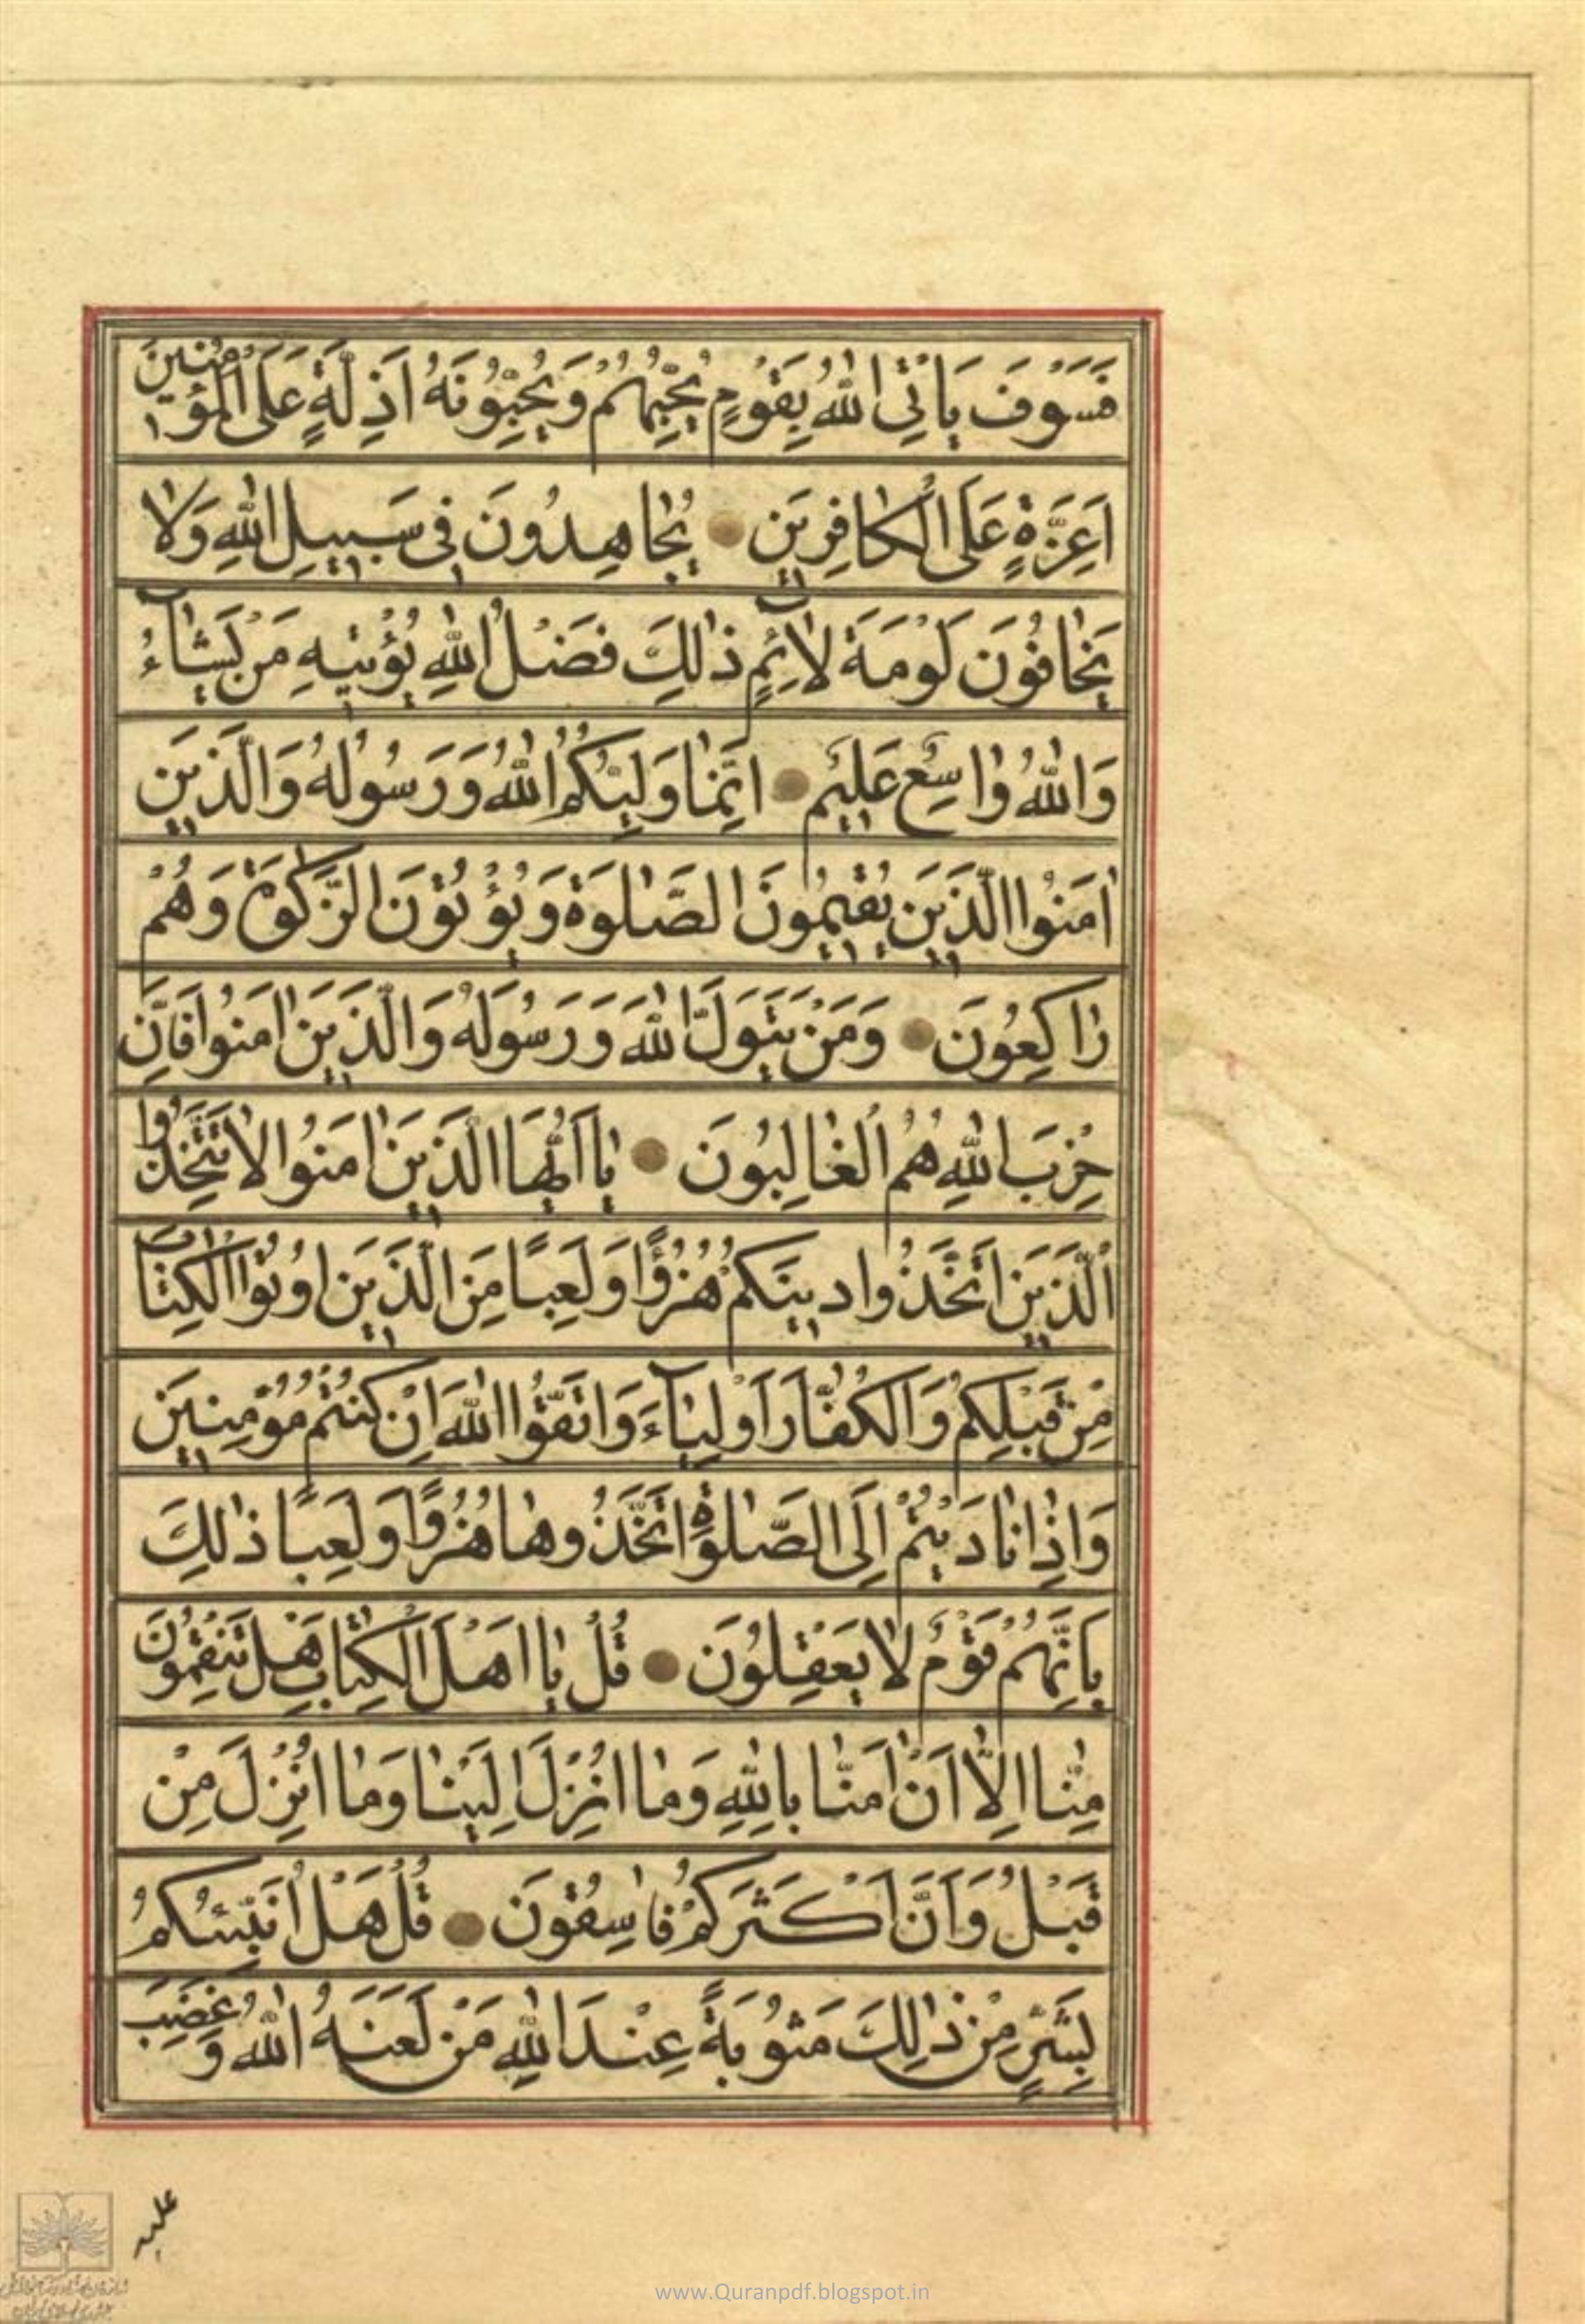 فَسَوْفَ يَاْتِى اللّٰهُ بِقَوْمٍ يُحِبُّهُمْ وَيُحِبُّونَهُ اَذِلَّةٍ عَلَى الْمُؤْمِنِينَ
اَعِزَّةٍ عَلَى الْكٰافِرِينَ يُجٰاهِدُونَ فِى سَبِيلِ اللّٰهِ وَلٰا
يَخٰافُونَ لَوْمَةَ لٰائِمٍ ذٰلِكَ فَضْلُ اللّٰهِ يُؤْتِيهِ مَنْ يَشٰآءُ
وَاللّٰهُ وٰاسِعٌ عَلِيمٌ اِنَّمٰا وَلِيُّكُمُ اللّٰهُ وَرَسُولُهُ وَالَّذِينَ
اٰمَنُوا الَّذِينَ يُقِيمُونَ الصَّلٰوةَ وَيُؤْتُونَ الزَّكٰوةَ وَهُمْ
رٰاكِعُونَ وَمَنْ يَتَوَلَّ اللّٰهَ وَرَسُولَهُ وَالَّذِينَ اٰمَنُوا فَاِنَّ
حِزْبَ اللّٰهِ هُمُ الْغٰالِبُونَ يٰا اَيُّهَا الَّذِينَ اٰمَنُوا لٰا تَتَّخِذُوا
الَّذِينَ اتَّخَذُوا دِينَكُمْ هُزُؤًا وَلَعِبًا مِنَ الَّذِينَ اُوتُوا الْكِتٰابَ
مِنْ قَبْلِكُمْ وَالْكُفّٰارَ اَوْلِيٰآءَ وَاتَّقُوا اللّٰهَ اِنْ كُنْتُمْ مُؤْمِنِينَ
وَاِذٰا نٰادَيْتُمْ اِلَى الصَّلٰوةِ اتَّخَذُوهٰا هُزُوًا وَلَعِبًا ذٰلِكَ
بِاَنَّهُمْ قَوْمٌ لٰا يَعْقِلُونَ قُلْ يٰا اَهْلَ الْكِتٰابِ هَلْ تَنْقِمُونَ
مِنّٰا اِلّٰا اَنْ اٰمَنّٰا بِاللّٰهِ وَمٰا اُنْزِلَ اِلَيْنٰا وَمٰا اُنْزِلَ مِنْ
قَبْلُ وَاَنَّ اَكْثَرَكُمْ فٰاسِقُونَ قُلْ هَلْ اُنَبِّئُكُمْ
بِشَرٍّ مِنْ ذٰلِكَ مَثُوبَةً عِنْدَ اللّٰهِ مَنْ لَعَنَهُ اللّٰهُ وَغَضِبَ
عليه
www.Quranpdf.blogspot.in